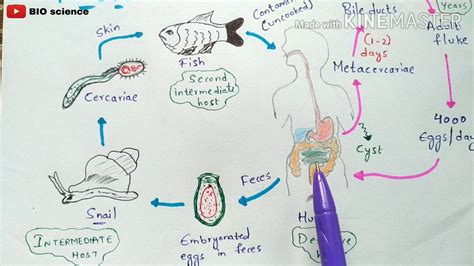 BIO science
Made with KINEMASTER
Skin
Fish
Second
intermediate
host
(uncooked)
Bile ducts
(1-2)
days
Metacercariae
Cyst
(Years)
Adult
fluke
4000
Eggs/day
Cercariae
Snail
INTERMEDIATE
HOST
Feces
Embryonated
eggs in feces